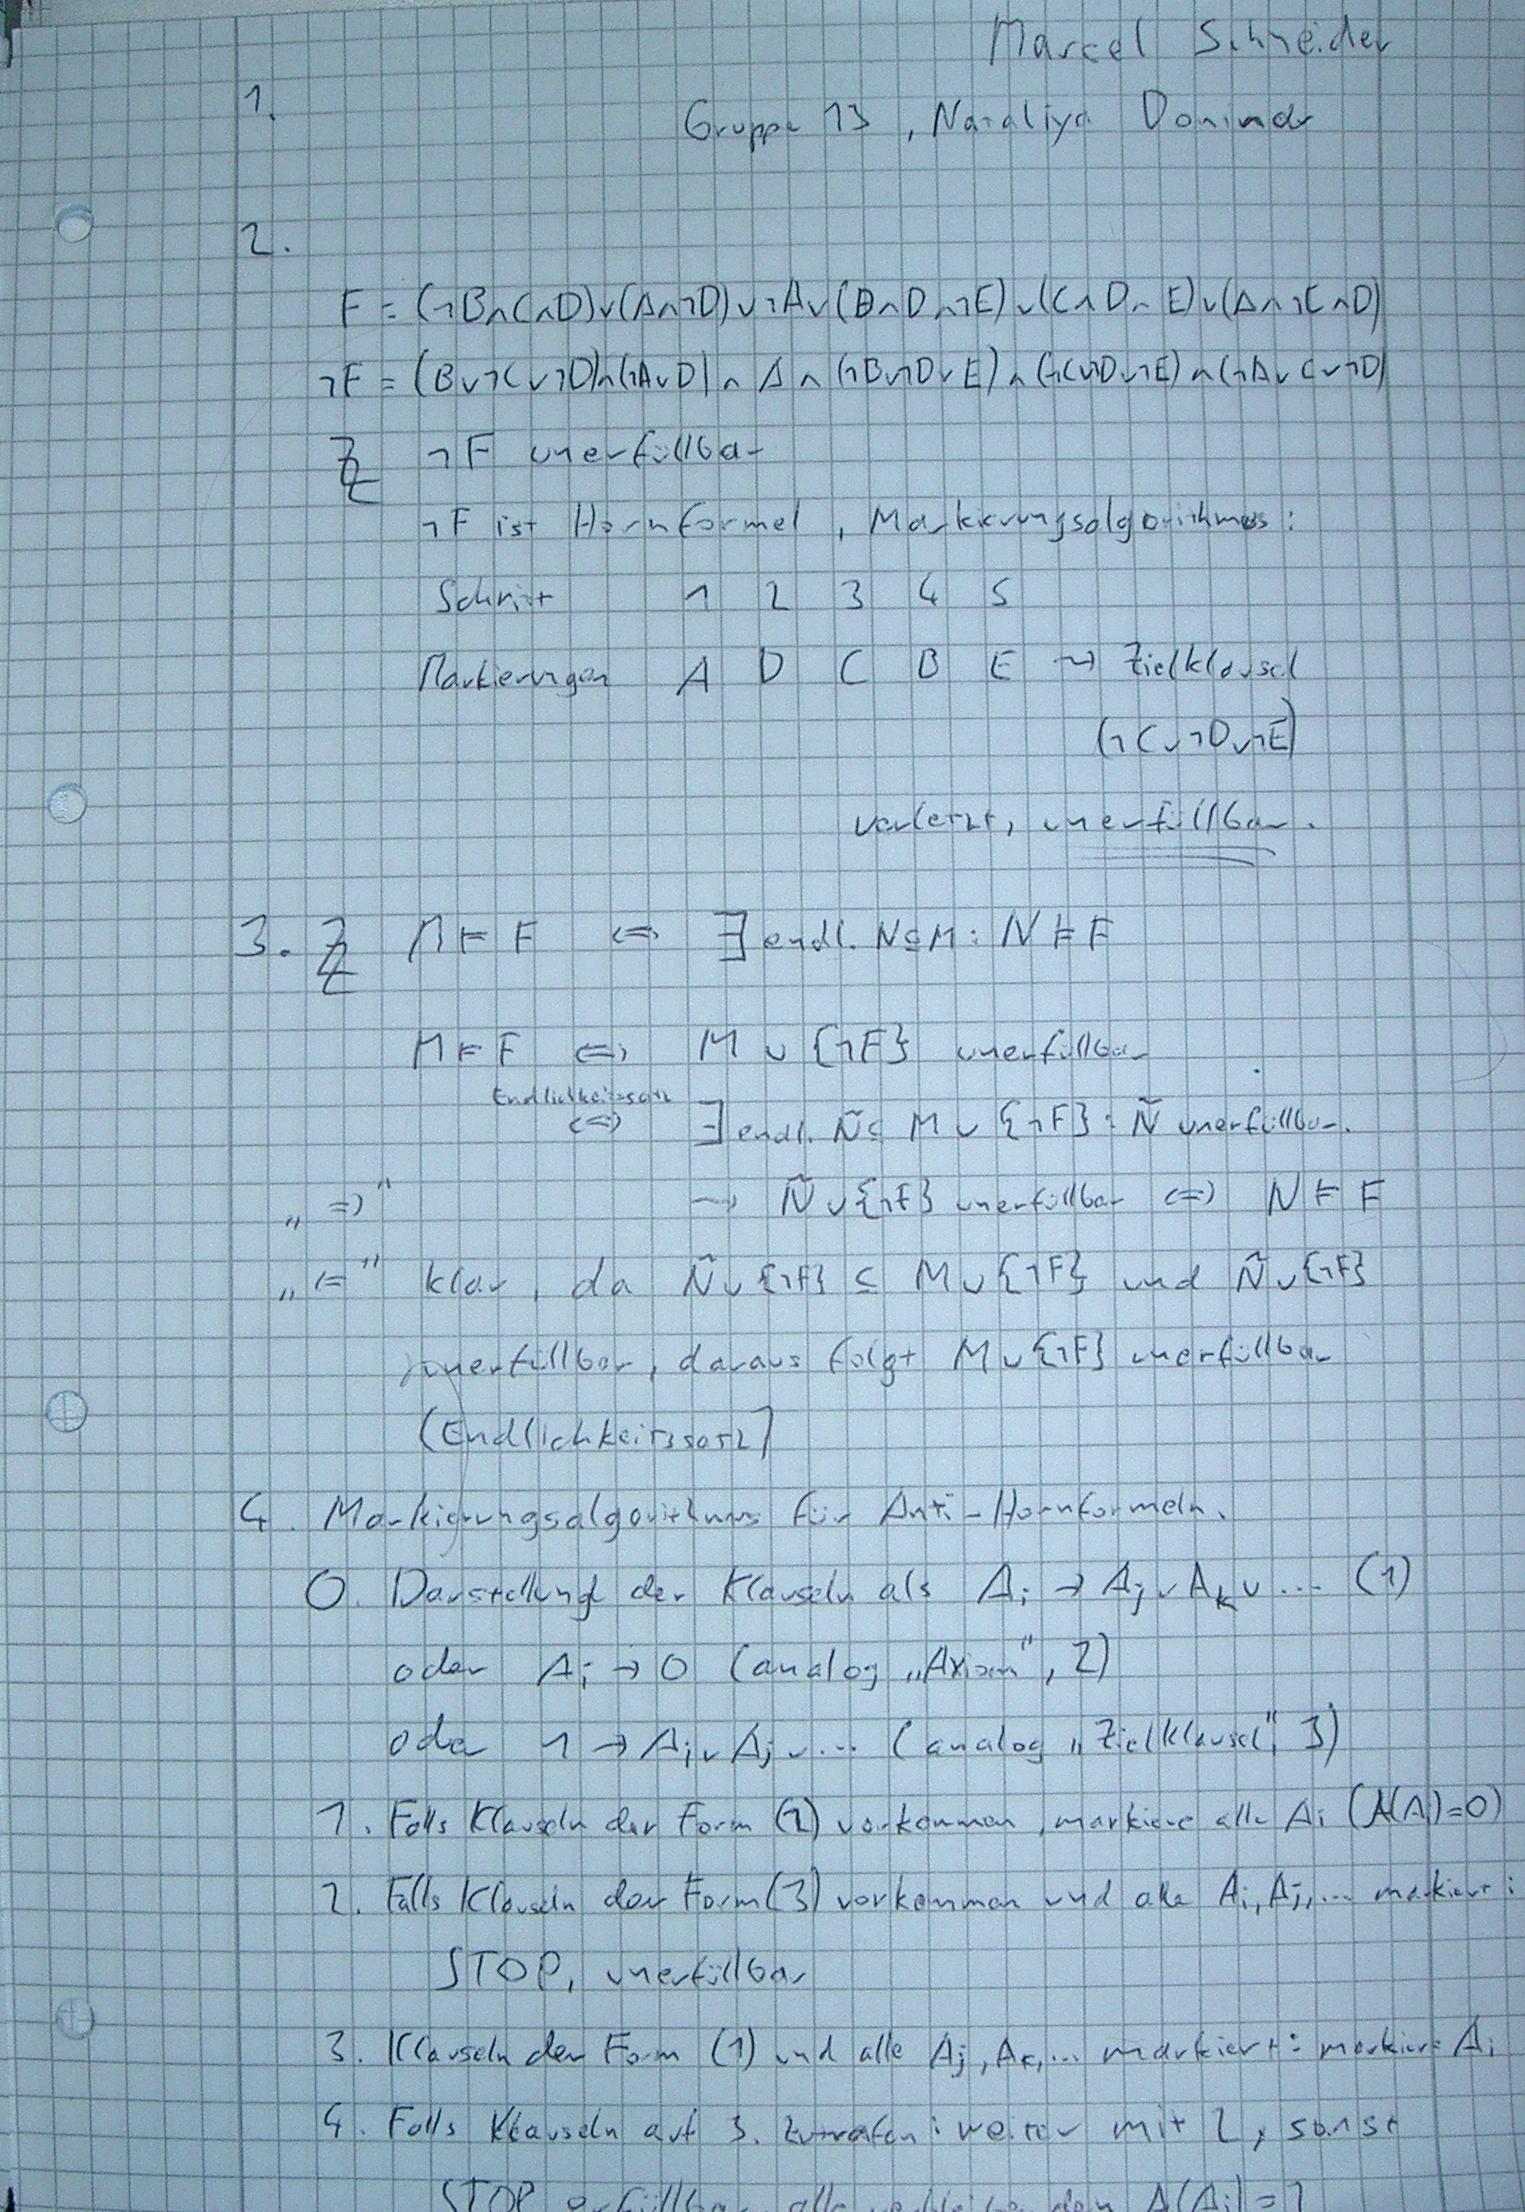 Marcel Schneider
1.
Gruppe 13, Nataliya
2.
F = (¬B∧C∧D)∨(A∧¬D)∨¬A∨(B∧D∧¬E)∨(C∧D∧E)∨(A∧¬C∧D)
¬F = (B∨¬C∨¬D)∧(¬A∨D)∧A∧(¬B∨¬D∨E)∧(¬C∨¬D∨¬E)∧(¬A∨C∨¬D)
ZZ ¬F unerfüllbar
¬F ist Hornformel, Markierungsalgorithmus:
Schritt 1 2 3 4 5
Markierungen A D C B E ⇝ Zielklausel
(¬C∨¬D∨¬E)
verletzt, unerfüllbar.
3. ZZ M ⊨ F ⇔ ∃ endl. N⊆M: N ⊨ F
M ⊨ F ⇔ M ∪ {¬F} unerfüllbar
Endlichkeitssatz
⇔ ∃ endl. Ñ⊆ M ∪ {¬F}: Ñ unerfüllbar.
„⇒" → Ñ∪{¬F} unerfüllbar ⇔ N ⊨ F
„⇐" klar, da Ñ∪{¬F} ⊆ M∪{¬F} und Ñ∪{¬F}
unerfüllbar, daraus folgt M∪{¬F} unerfüllbar
(Endlichkeitssatz)
4. Markierungsalgorithmus für Anti-Hornformeln.
0. Darstellung der Klauseln als Ai → Aj ∨ Ak ∨ ... (1)
oder Ai → 0 (analog „Axiom", 2)
oder 1 → Ai ∨ Aj ∨ ... (analog „Zielklausel", 3)
1. Falls Klauseln der Form (2) vorkommen, markiere alle Ai (A(Ai)=0)
2. Falls Klauseln der Form (3) vorkommen und alle Ai, Aj, ... markiert:
STOP, unerfüllbar
3. Klauseln der Form (1) und alle Aj, Ak, ... markiert: markiere Ai
4. Falls Klauseln auf 3. zutrafen: weiter mit 2, sonst
STOP erfüllbar, alle verbleibenden A(Ai)=1